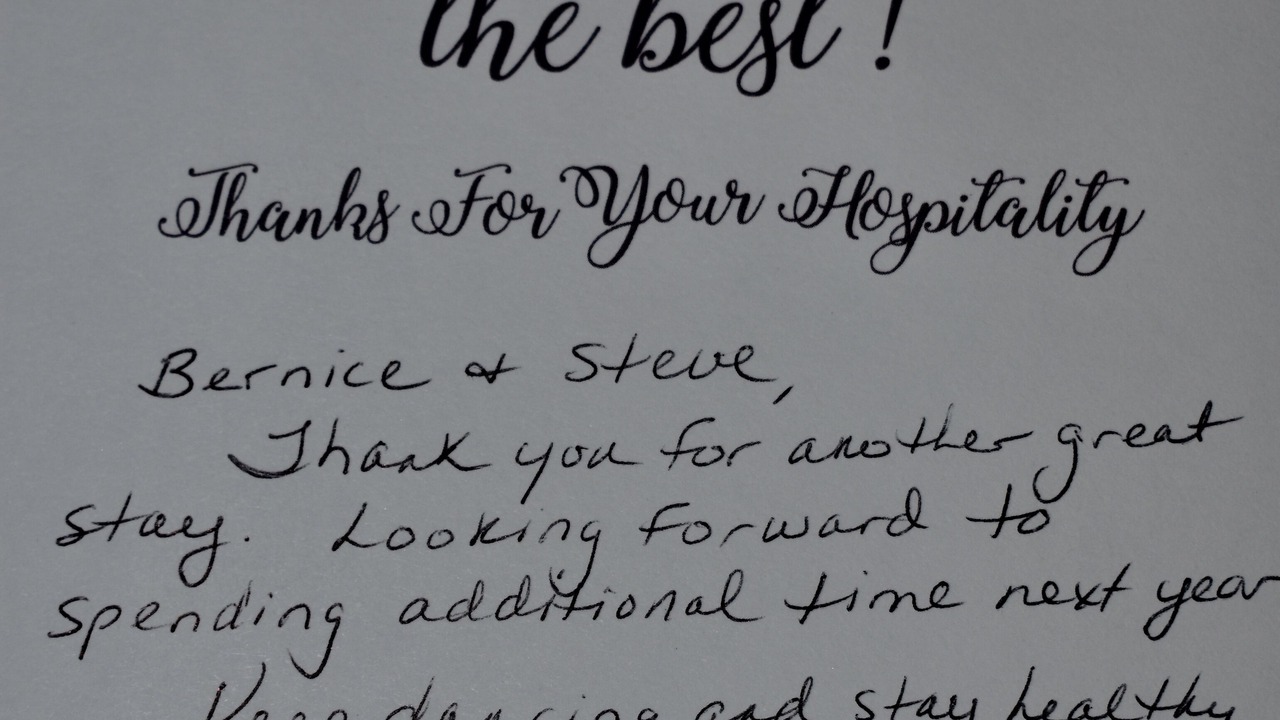 the best !
Thanks For Your Hospitality
Bernice & Steve,
Thank you for another great
stay. Looking forward to
spending additional time next year
Keep dancing and stay healthy